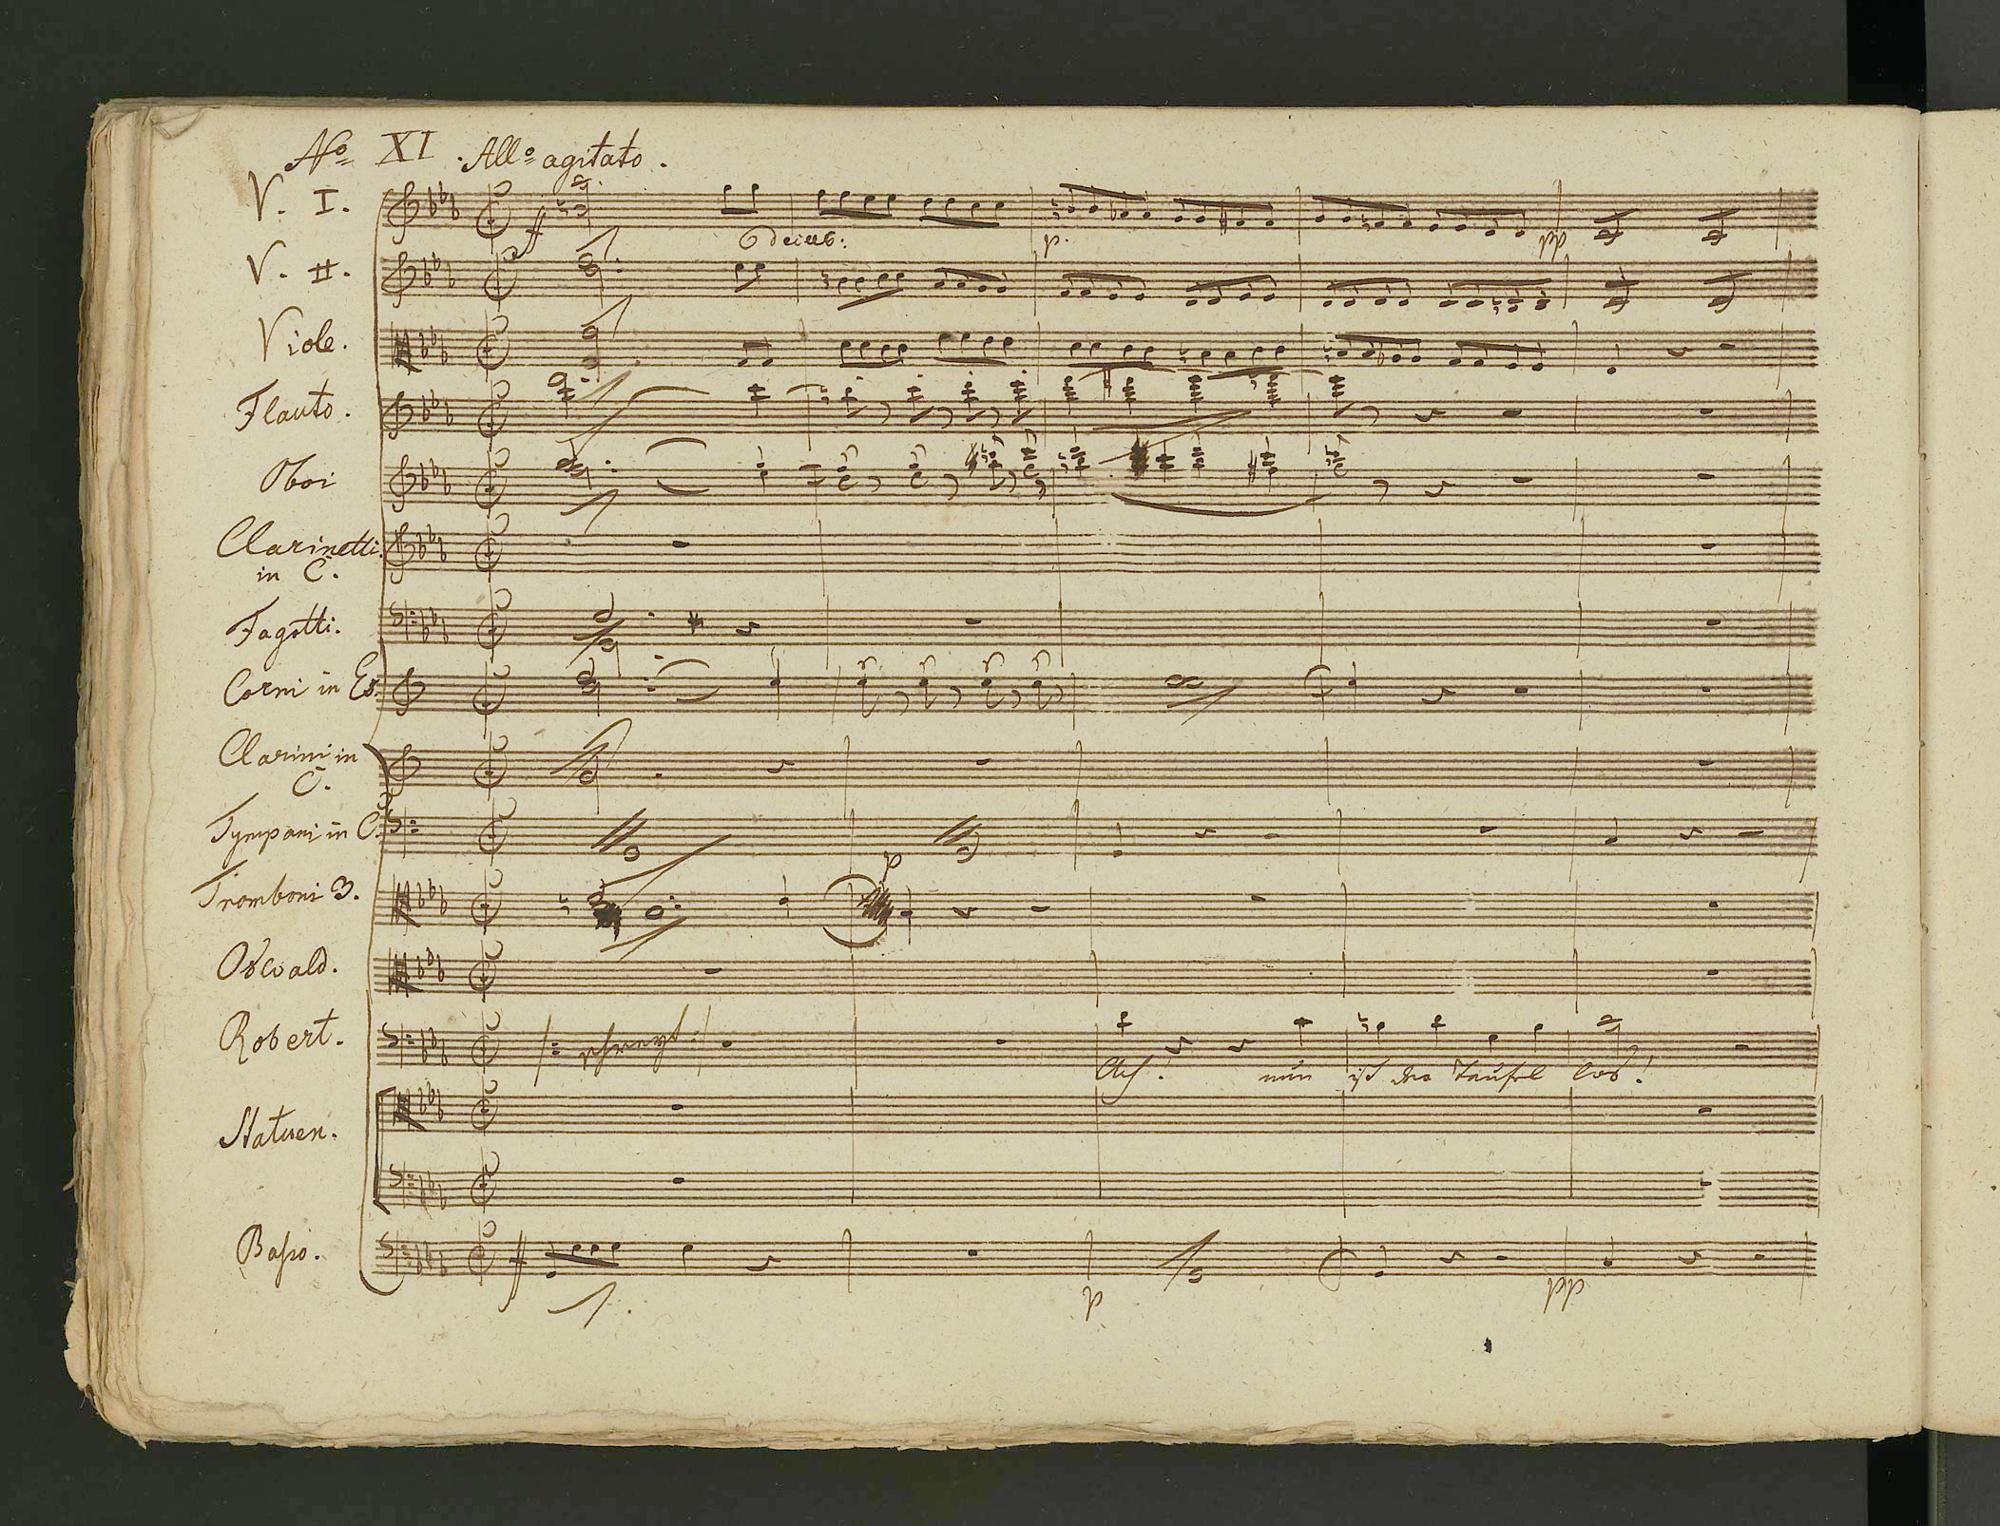 No XI. Allo agitato.
V. I.
ff
decres:
p.
pp
V. II.
Viole.
Flauto.
Oboi
Clarinetti
in C.
Fagotti.
Corni in Es.
Clarini in
C.
Tympani in C.
p
Tromboni 3.
Oswald.
Robert.
schreyt
Ach! nun ist der Teufel los!
Statuen.
Basso.
ff
p
pp